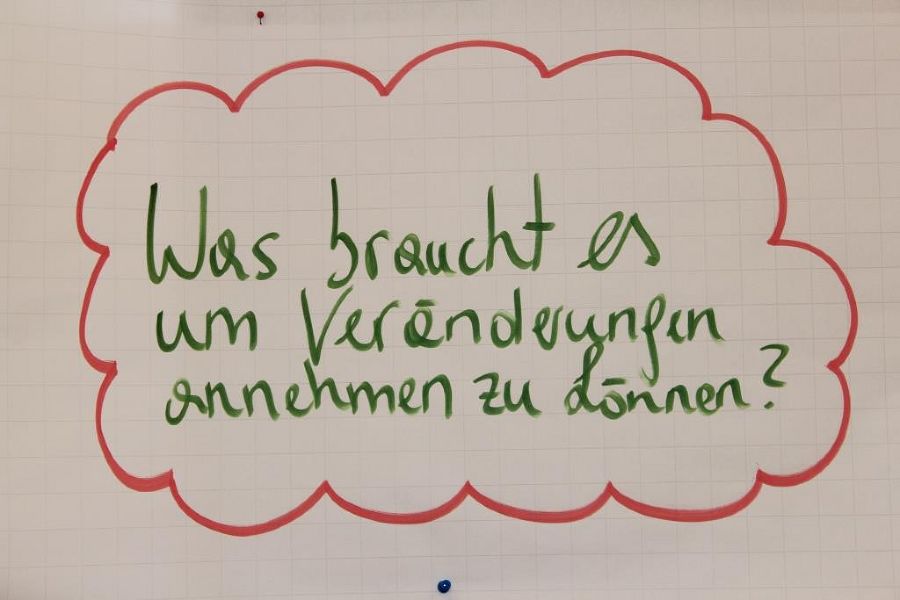 Was braucht es
um Veränderungen
annehmen zu können?